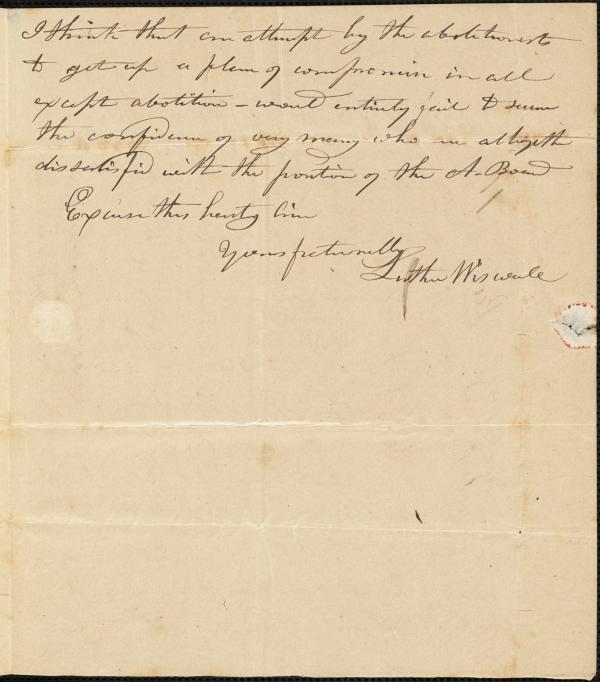 I think that an attempt by the abolitionists
to get up a plan of compromise in all
except abolition - would entirely fail to secure
the confidence of very many who are altogeth
dissatisfied with the position of the A. Board
Excuse this hasty line
Yours fraternally
Luther Wiswall